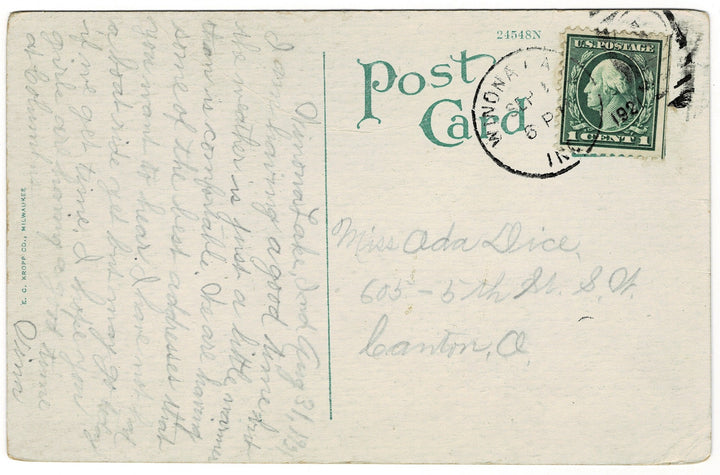 24548N
Post
Card
WINONA LA
SEP 1
6 P
192
IND
U.S. POSTAGE
1 CENT 1
Winona Lake, Ind. Aug 31,
I am having a good time but
the weather is just a little warmer
than is comfortable. We are having
some of the best addresses that
you want to hear. I have not had
a boat ride yet but may go today
if we get time. I hope you
girls are having a good time
at Columbus
Nina
Miss Ada Dice,
605-5th St. S.W.
Canton, O.
E. C. KROPP CO., MILWAUKEE